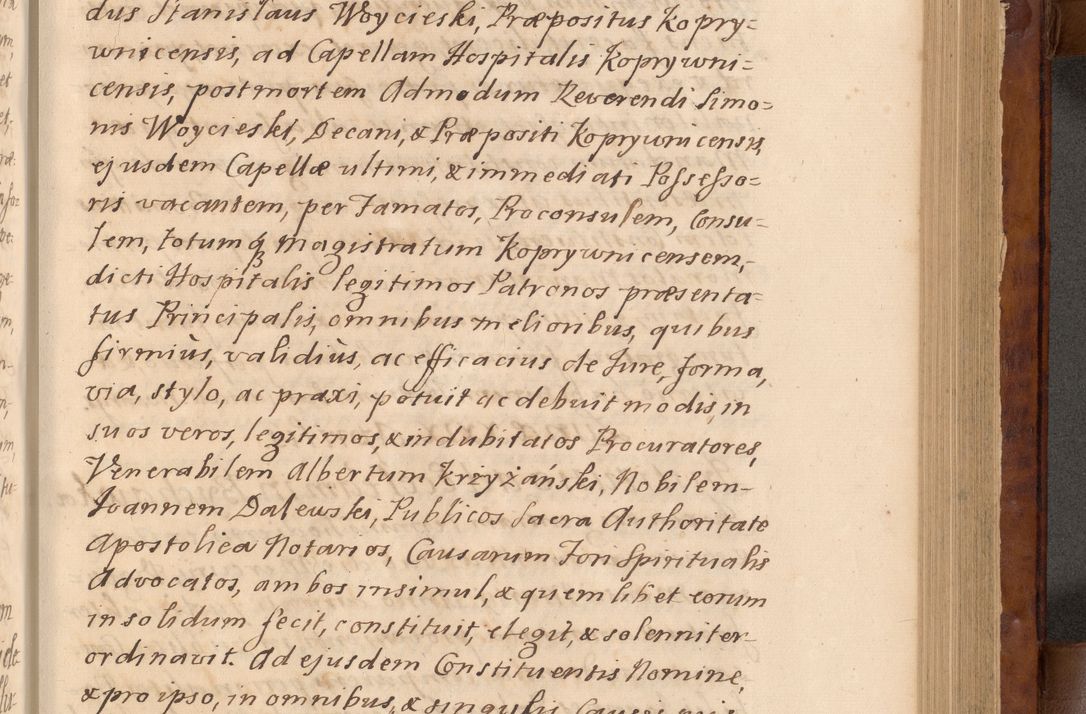 dus Stanislaus Woycieski, Præpositus Kopry=
wnicensis, ad Capellam Hospitalis Koprywni=
censis, post mortem Admodum Reverendi Simo=
nis Woycieski, Decani, & Præpositi Koprywnicensis,
ejusdem Capellæ ultimi, & immediati Possesso=
ris vacantem, per Famatos, Proconsulem, Consu=
lem, totumq Magistratum Koprywnicensem,
dicti Hospitalis legitimos Patronos præsenta=
tus Principalis, omnibus melioribus, quibus
firmiùs, validiùs, ac efficacius de Jure, forma,
via, stylo, ac praxi, potuit ac debuit modis, in
suos veros, legitimos, & indubitatos Procuratores,
Venerabilem Albertum Krzyżański, Nobilem
Joannem Dalewski, Publicos Sacra Authoritate
Apostolica Notarios, Causarum Fori Spiritualis
Advocatos, ambos insimul, & quemlibet eorum
in solidum fecit, constituit, elegit, & solenniter
ordinavit. Ad ejusdem Constituentis Nomine,
& pro ipso, in omnibus, & singulis Causis